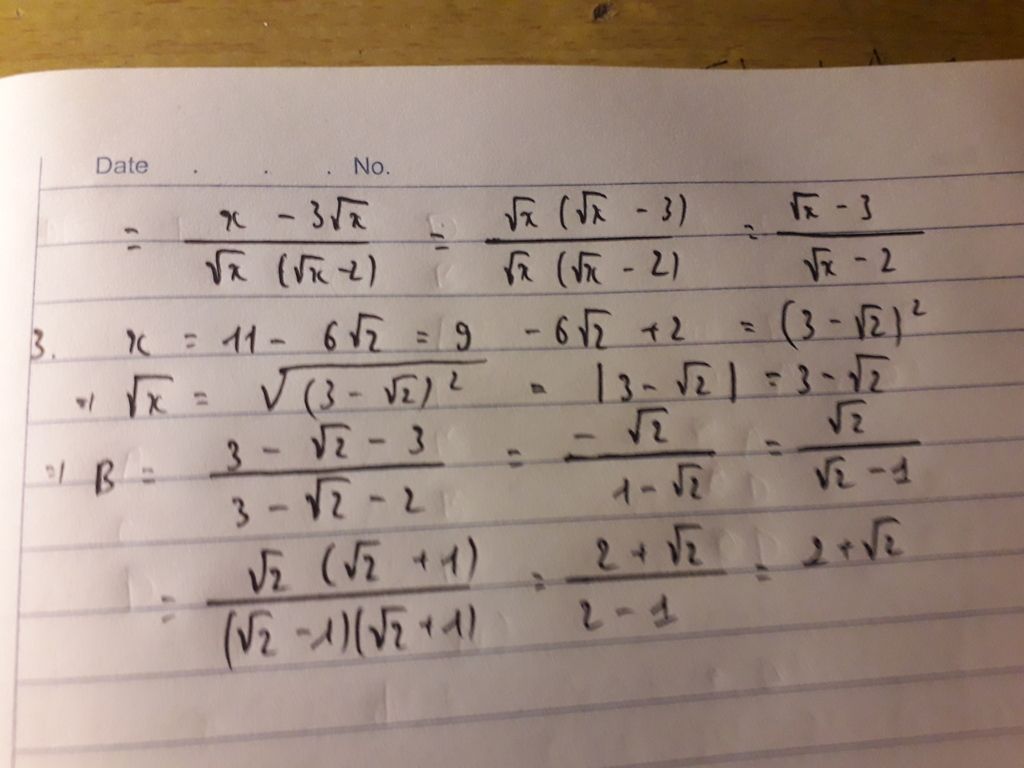 Date . . . No.
= \frac{x - 3\sqrt{x}}{\sqrt{x} (\sqrt{x} - 2)} = \frac{\sqrt{x} (\sqrt{x} - 3)}{\sqrt{x} (\sqrt{x} - 2)} = \frac{\sqrt{x} - 3}{\sqrt{x} - 2}
3. x = 11 - 6\sqrt{2} = 9 - 6\sqrt{2} + 2 = (3 - \sqrt{2})^2
=) \sqrt{x} = \sqrt{(3 - \sqrt{2})^2} = |3 - \sqrt{2}| = 3 - \sqrt{2}
=) B = \frac{3 - \sqrt{2} - 3}{3 - \sqrt{2} - 2} = \frac{-\sqrt{2}}{1 - \sqrt{2}} = \frac{\sqrt{2}}{\sqrt{2} - 1}
= \frac{\sqrt{2} (\sqrt{2} + 1)}{(\sqrt{2} - 1)(\sqrt{2} + 1)} = \frac{2 + \sqrt{2}}{2 - 1} = 2 + \sqrt{2}